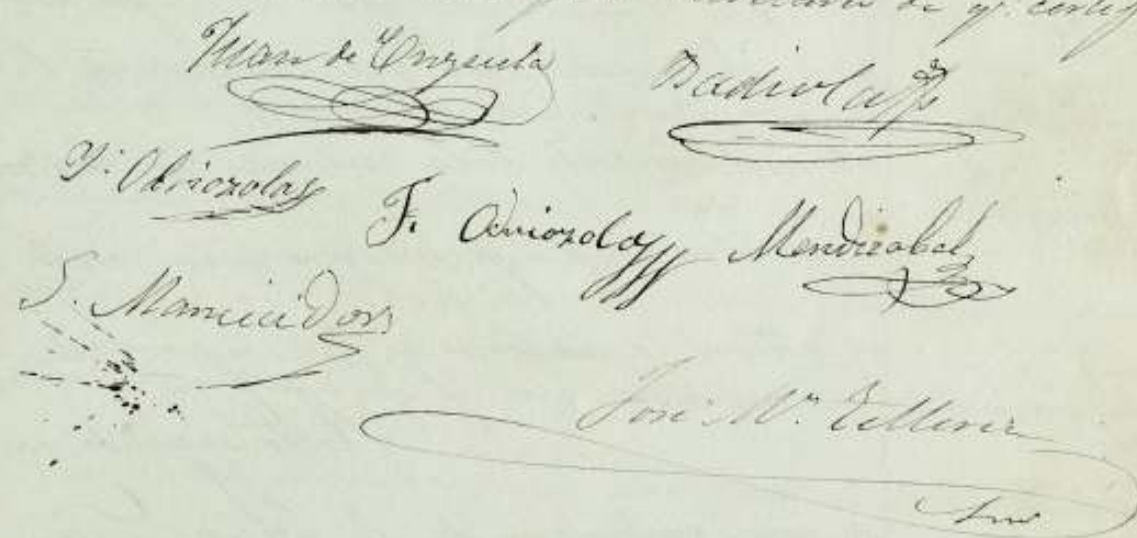 de qe. certif
Juan de Unzueta Badiola
Y. Odriozola
F. Odriozola Mendizabal
S. Mancicidor
José Ma. Tellería
Srio